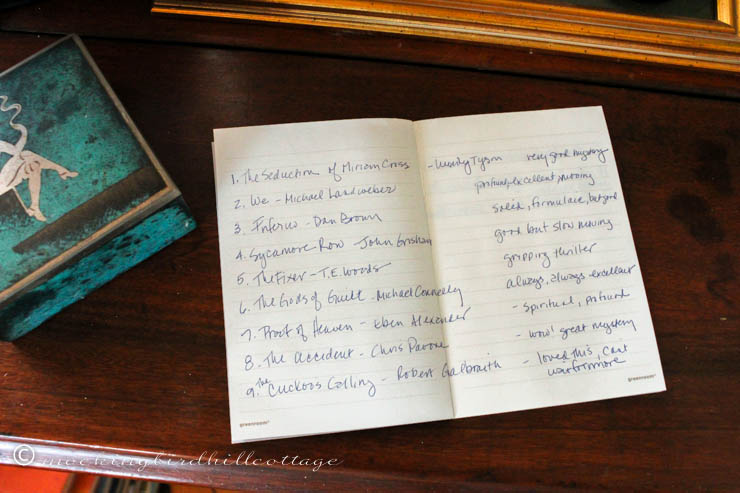 1. The Seduction of Miriam Cross - Wendy Tyson very good mystery
2. We - Michael Landweber profound, excellent, moving
3. Inferno - Dan Brown solid, formulaic, but good
4. Sycamore Row - John Grisham good but slow moving
5. The Fixer - T.E. Woods gripping thriller
6. The Gods of Guilt - Michael Connelly always, always excellent
7. Proof of Heaven - Eben Alexander - spiritual, profound
8. The Accident - Chris Pavone - wow! great mystery
9. The Cuckoos Calling - Robert Galbraith - loved this, can't
wait for more
greenroom
greenroom
© mockingbirdhillcottage